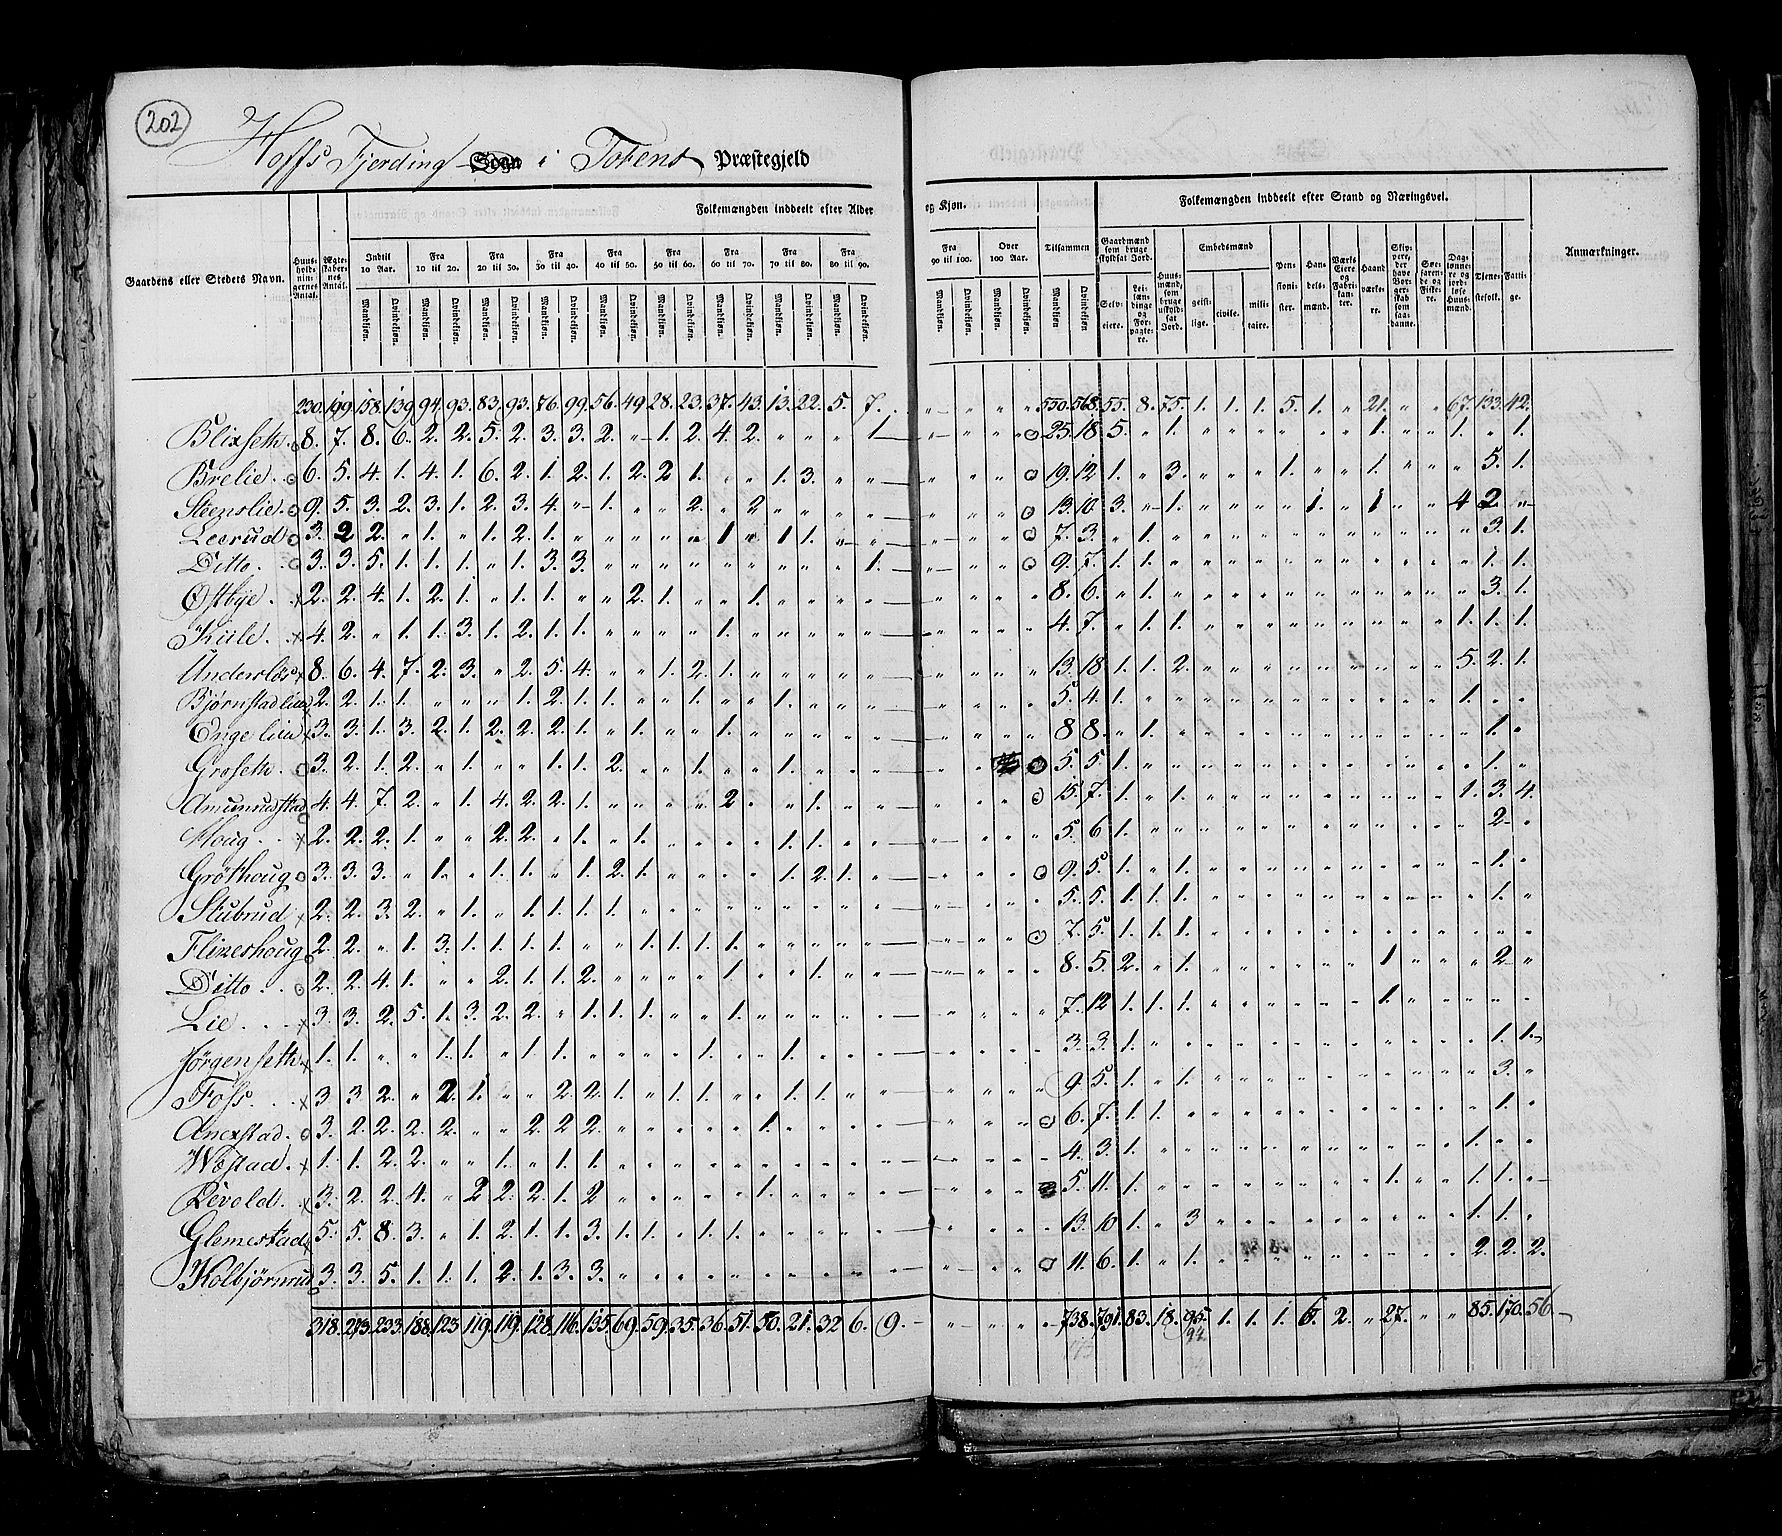 202
Hoffs Fjerding Sogn i Totens Præstegjeld
Gaardens eller Stedets Navn. Huusholdningernes Antal. Ægteskabernes Antal. Folkemængden inddeelt efter Alder og Kjøn. Tilsammen Folkemængden inddeelt efter Stand og Næringsvei. Anmærkninger.
Indtil 10 Aar. Fra 10 til 20. Fra 20 til 30. Fra 30 til 40. Fra 40 til 50. Fra 50 til 60. Fra 60 til 70. Fra 70 til 80. Fra 80 til 90. Fra 90 til 100. Over 100 Aar.
Mandkiøn. Qvindekiøn.
Gaardmænd som bruge skyldsat Jord. Selveiere. Leilændinge og Forpagtere. Huusmænd, som bruge uskyldsat Jord. Embedsmænd geistlige. civile. militaire. Pensionister. Handelsmænd. Værks Eiere og Fabrikanter. Haandværkere. Skippere, der have Borgerskab som saadanne. Søefarende og Fiskere. Daglønnere og jordløse Huusmænd. Tienestefolk. Fattige.
230. 199. 158. 139. 94. 93. 83. 93. 76. 99. 56. 49. 28. 23. 37. 43. 13. 22. 5. 7. " " " " 550. 568. 55. 8. 75. 1. 1. 1. 5. 1. " 21. " " 67. 133. 42.
Blixseth. 8. 7. 8. 6. 2. 2. 5. 2. 3. 3. 2. " 1. 2. 4. 2. " " " 1. 25. 18. 5. " 1. " " " " " " 1. " " 1. " 1.
Brelie. 6. 5. 4. 1. 4. 1. 6. 2. 1. 2. 1. 2. 2 1. " " 1. 3. " " 19. 12. 1. " 3. " " " 1. " " 1. " " " 5. 1.
Steenslie. 9. 5. 3. 2. 3. 1. 2. 3. 4. " 1. " " 2. " 2. " " " " 13. 10. 3. " 1. " " " " 1. " 1. " " 4 2. "
Leerud 3. 2 2. " 1. " 1. 2. 1. " " " " " 1 " 1 1. " " 7. 3. " 1. " " " " " " " " " " " 3. 1.
Ditto. 3. 3. 5. 1. 1. 1. " 1. 3. 3. " " " " " " " " " 1. 9. 7. 1. 1. " " " " " " " " " " " 1. 1.
Østbye. 2. 2. 4. 1. 2. 1. " 1. 1. " " 2. 1. " " 1. " " " " 8. 6. " 1. " " " " " " " " " " " 3. 1.
Kiile. 4. 2. " 1. 1. 3. 1. 2. 1. 1. " " " " 1. " " " " " 4. 7. " 1. 1. " " " " " " " " " 1. 1. 1.
8. 6. 4. 7. 2. 3. " 2. 5. 4. " " 1. 2. 1. " " " " " 13. 18. 1. 1. 2. " " " " " " " " " 5. 2. 1.
2. 2. 1. 1. " " " 1. 2. 1. 1. " " 1. " " 1. " " " 5. 4. 1. " " " " " " " " " " " 1. " "
3. 3. 1. 3. 2. 1. 2. 2. 2. 1. " 1. " " 1. " " " " " 8 8. " 1. " " " " " " " " " " " 1. "
Groseth. 3. 2. 1. 2. " 1. " " 1. 1. 2. " " 1. " " 1. " " " 5. 5. 1. " " " " " " " " " " " " 1. "
4. 4. 7. 2. " 1. 4. 2. 2. 1. " " " " 2. " " 1. " " 15. 7. 1. " 1. " " " " " " " " " 1. 3. 4.
Houg. 2. 2. 2. 1. " " 2. 2. " 1. " 1. " " " " 1. 1. " " 5. 6. 1. " " " " " " " " " " " " 2. "
Grøthoug 3. 3. 3. " 1. " 1. 1. " 1. 2. 1. " " " " 1. 2. 1. " 9. 5. 1. " 1. " " " " " " " " " " 1. "
Stubrud 2. 2. 3. 2. " 1. " 1. 1. 1. 1. " " " " " " " " " 5. 5. 1. 1. 1. " " " " " " " " " " 1. "
2. 2. " 1. 3. 1. 1. 1. 1. " " 1. 1. 1. 1. " " " " " 7. 5. 1. 1. 1. " " " " " " " " " " " "
Ditto. 2. 2. 4. 1. " " 2. 1. 1. 2. " " " " 1. " " 1. " " 8. 5. 2. " 1. " " " " " " 1. " " " 2. "
Lie. 3. 3. 2. 5. 1. 3. 2. 2. " 1. 1. 1. " " 1. " " " " " 7. 12. 1. 1. 1. " " " " " " 1. " " " " "
Jørgenseth 1. 1. " " 1. 1. " 1. 1. " " " " 1. " " 1. " " " 3. 3. 1. " " " " " " " " " " " " 1. 1.
Foss. 3. 3 2. " 2. 1. " " 2. 2. 1. " 1. 1. " " 1. 1. " " 9. 5. 1. " 1. " " " " " " " " " " 3. "
3. 2. 2. 2. 2. " " 2. 2. 2. " " " " " 1. " " " " 6. 7. 1. 1. " " " " " " " " " " " 1. "
1. 1. 2. 2. " " 1. " 1. 1. " " " " " " " " " " 4. 3. 1. " " " " " " " " " " " 1. " "
3. 2. 2. 4. " 2 2. 2. 1. 2 " " " " " 1. " " " " 5. 11. 1. " " " " " " " " 1. " " 1. 1. "
Glemestad 5. 5. 8. 3. " 1. 2. 1. 1. 3. 1. 1. " 1. 1. " " " " " 13. 10 1. " 3. " " " " " " " " " 1. 1. "
Kolbjørnrud 3. 3. 5. 1. 1. 1. 2. 1. 3. 3. " " " " " " " " " " 11. 6. 1. " 1. " " " " " " " " " 2. 2. 2.
318. 273. 233. 188. 123. 119. 119. 128. 116. 135. 69. 59. 35. 36. 51. 50. 21. 32 6. 9. " " " " 738. 791. 83. 18. 95. 1. 1. 1. 6. 2. " 27. " " 85. 170. 56